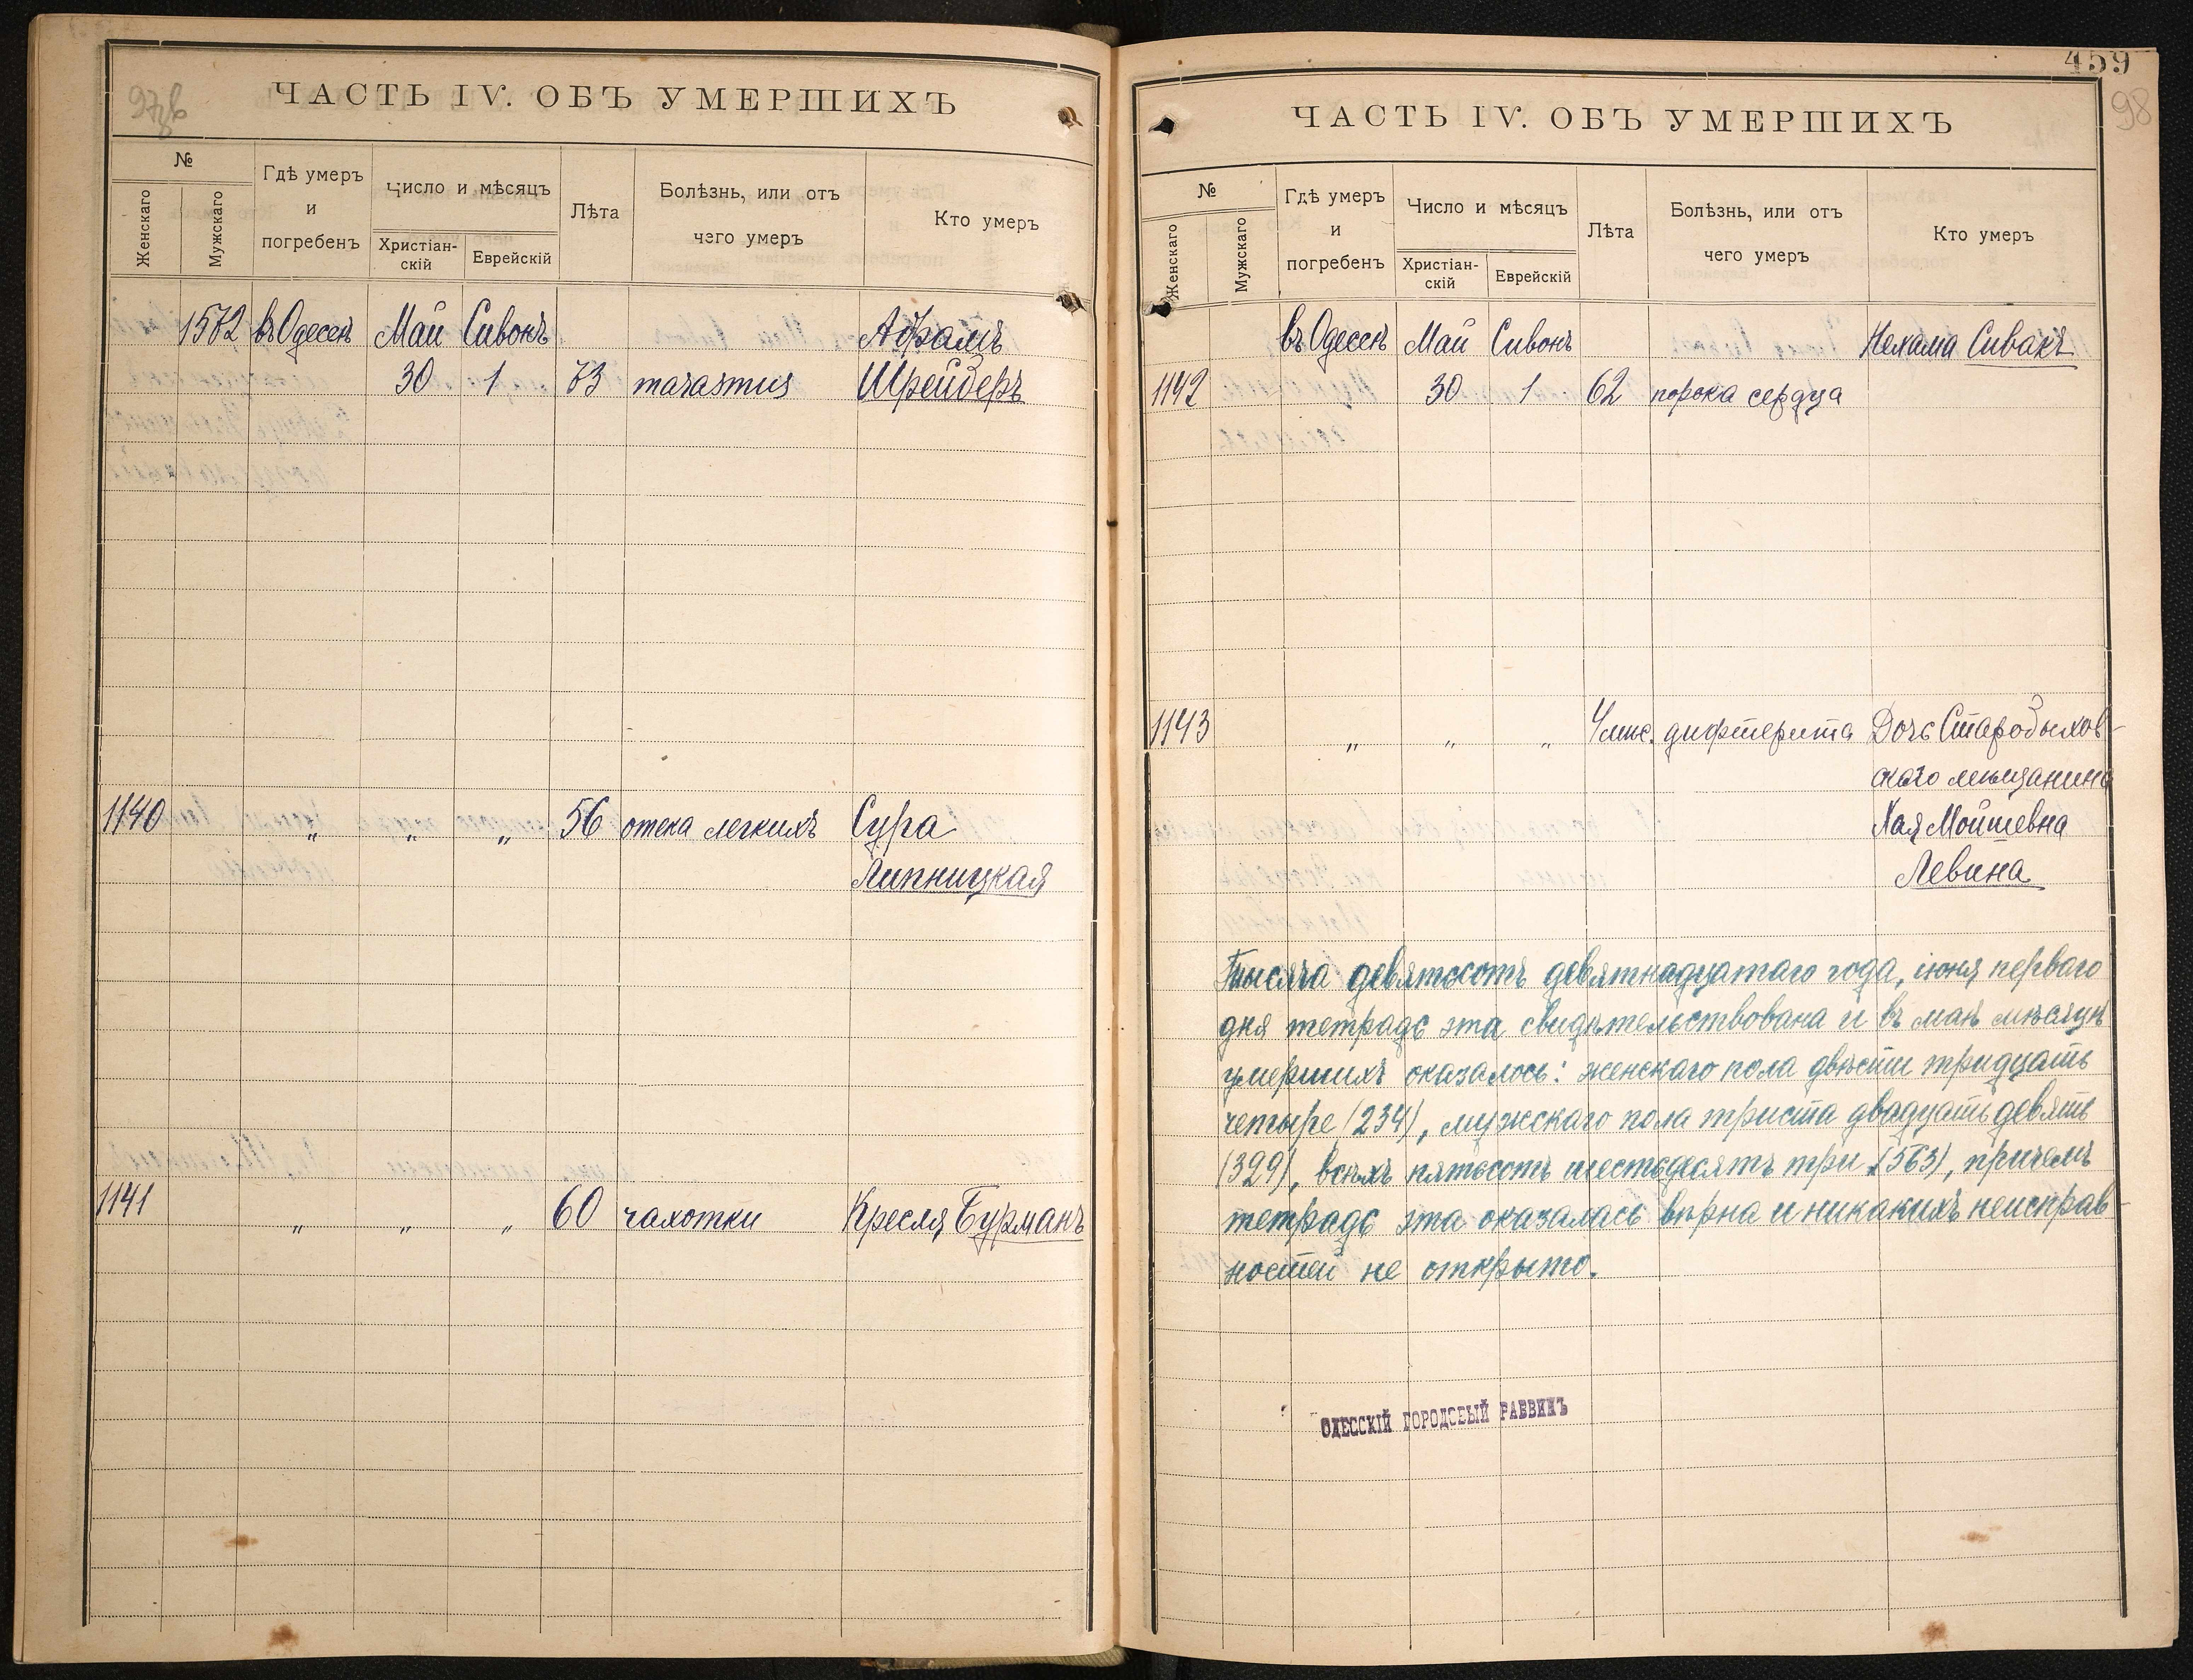 97об
ЧАСТЬ IV. ОБЪ УМЕРШИХЪ
№
Женскаго
Мужскаго
Гдѣ умеръ
и
погребенъ
Число и мѣсяцъ
Христіан-
скій
Еврейскій
Лѣта
Болѣзнь, или отъ
чего умеръ
Кто умеръ
1572 въ Одессѣ Май Сивонъ Абрамъ
30 1 73 marasmus Шрейдеръ
1140 „ „ „ 56 отека легкихъ Сура
Липницкая
1141 „ „ „ 60 чахотки Кресля Бурманъ
459
98
ЧАСТЬ IV. ОБЪ УМЕРШИХЪ
№
Женскаго
Мужскаго
Гдѣ умеръ
и
погребенъ
Число и мѣсяцъ
Христіан-
скій
Еврейскій
Лѣта
Болѣзнь, или отъ
чего умеръ
Кто умеръ
въ Одессѣ Май Сивонъ Нехама Сивакъ
1142 30 1 62 порока сердца
1143 „ „ „ 4 мис. дифтерита Дочь Старобыхов-
скаго мѣщанина
Хая Мойшевна
Левина
Тысяча девятьсотъ девятнадцатаго года, іюня перваго
дня тетрадь эта свидѣтельствована и въ маѣ мѣсяцѣ
умершихъ оказалось: женскаго пола двѣсти тридцать
четыре (234), мужскаго пола триста двадцать девять
(329), всѣхъ пятьсотъ шестьдесятъ три (563), причемъ
тетрадь эта оказалась вѣрна и никакихъ неисправ-
ностей не открыто.
ОДЕССКІЙ ГОРОДОВЫЙ РАВВИНЪ